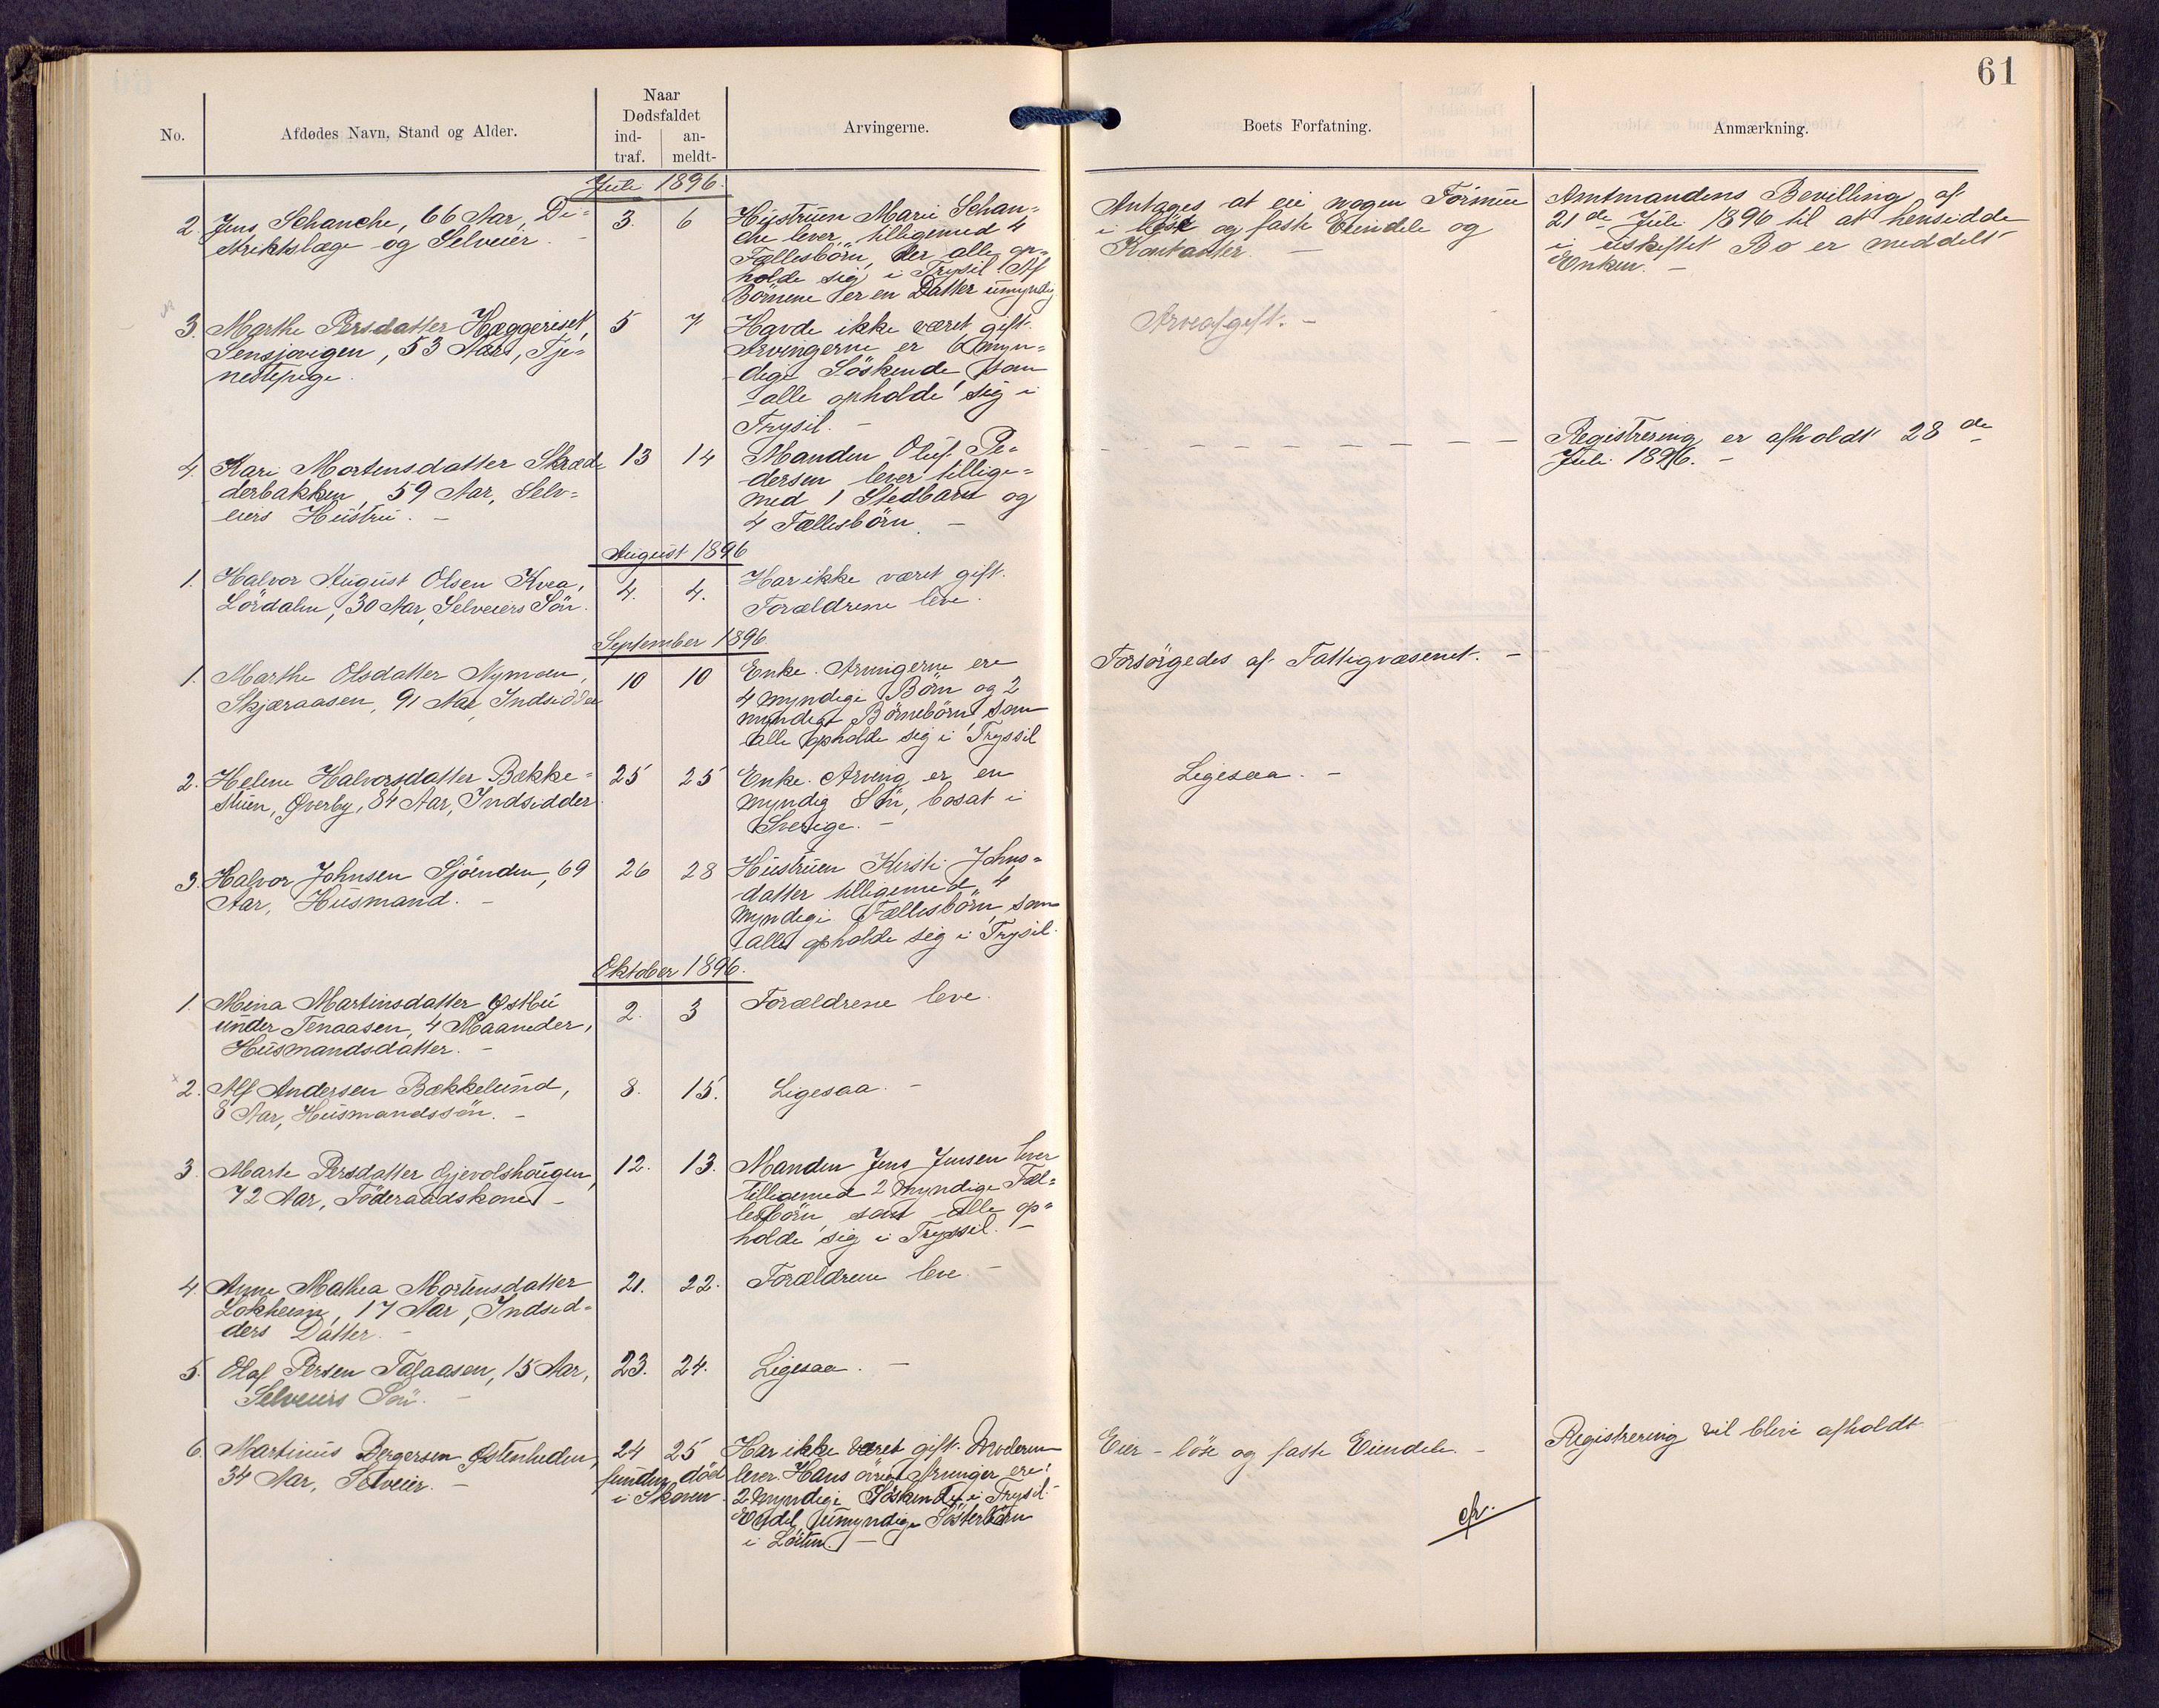 61
No.
Afdødes Navn, Stand og Alder.
Naar
Dødsfaldet
ind-
traf.
an-
meldt-
Arvingerne.
Boets Forfatning.
Anmærkning.
Juli 1896.
2. Jens Schanche, 66 Aar, Di=
striktslæge og Selveier.
3. 6
Hustruen Marie Schan=
che lever tilligemed 4
Fællesbörn, der alle op=
holde sig i Trysil. Af
Börnene er en Datter umyndig
Antages at eie nogen Formue
i löst og faste Eiendele og
Kontanter. –
Amtmandens Bevilling af
21de Juli 1896 til at hensidde
i uskiftet Bo er meddelt
Enken. –
3. Marthe Persdatter Hæggeriset,
Sensjøvigen, 53 Aar, Tje=
nestepige.
5 7
Havde ikke været gift.
Arvingerne er 6 myn=
dige Söskende som
alle opholde sig i
Trysil. –
Arveafgift. –
4. Kari Mortensdatter Skræd=
derbakken, 59 Aar, Selv=
eiers Hustru. –
13 14
Manden Oluf Pe=
dersen lever tillige=
med 1 Stedbarn og
4 Fællesbörn. –
– – – – – – – –
Registrering er afholdt 28de
Juli 1896. –
August 1896
1. Halvor August Olsen Kvea,
Lördalen, 30 Aar, Selveiers Sön.
4. 4.
Har ikke været gift.
Forældrene leve.
September 1896
1. Marthe Olsdatter Nymoen,
Skjæraasen, 91 Aar, Indsidder
10 10
Enke. Arvingerne ere
4 myndige Börn og 2
myndige Börnebörn som
alle opholde sig i Tryssil
Forsörgedes af Fattigvæsenet. –
2. Helene Halvorsdatter Bække=
stuen, Øverby, 84 Aar, Indsidder.
25 25
Enke. Arving er en
myndig Sön, bosat i
Sverige. –
Ligesaa. –
3. Halvor Johnsen Sjöenden, 69
Aar, Husmand. –
26 28
Hustruen Kirsti Johns=
datter tilligemed 4
myndige Fællesbörn som
alle opholde sig i Trysil.
Oktober 1896.
1. Mina Martinsdatter Østbu
under Tenaasen, 4 Maaneder,
Husmandsdatter. –
2. 3
Forældrene leve.
2. Alf Andersen Bækkelund,
8 Aar, Husmandssön. –
8. 15.
Ligesaa. –
3. Marte Persdatter Gjevolshaugen,
72 Aar, Föderaadskone –
12. 13.
Manden Jens Jensen lever
tilligemed 2 myndige Fæl=
lesbörn som alle op=
holde sig i Tryssil. –
4. Anne Mathea Mortensdatter
Lokheim, 17 Aar, Indsid=
ders Datter. –
21. 22.
Forældrene leve. –
5. Olaf Persen Talaasen, 15 Aar,
Selveiers Sön. –
23. 24.
Ligesaa. –
6. Martinus Bergersen Østenheden,
34 Aar, Selveier. –
24 25
funden död
i Skoven
Har ikke været gift. Moderen
lever. Hans övrige Arvinger ere:
2 myndige Söskende i Trysil.
Endel umyndige Sösterbörn
i Löiten. –
Eier löse og faste Eiendele. –
Registrering vil blive afholdt